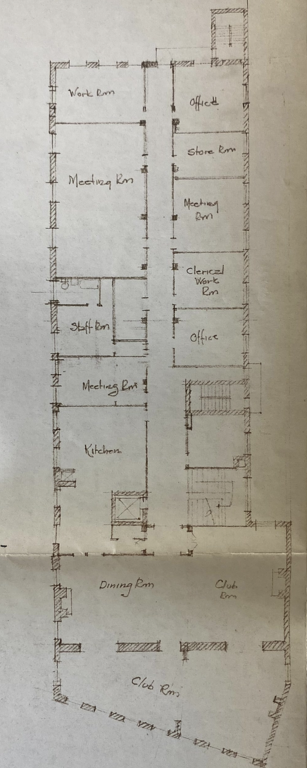 Work Rm
Office
Store Rm
Meeting Rm
Meeting
Rm
Clerical
Work
Rm
Staff Rm
Office
Meeting Rm
Kitchen
Dining Rm
Club
Rm
Club Rm